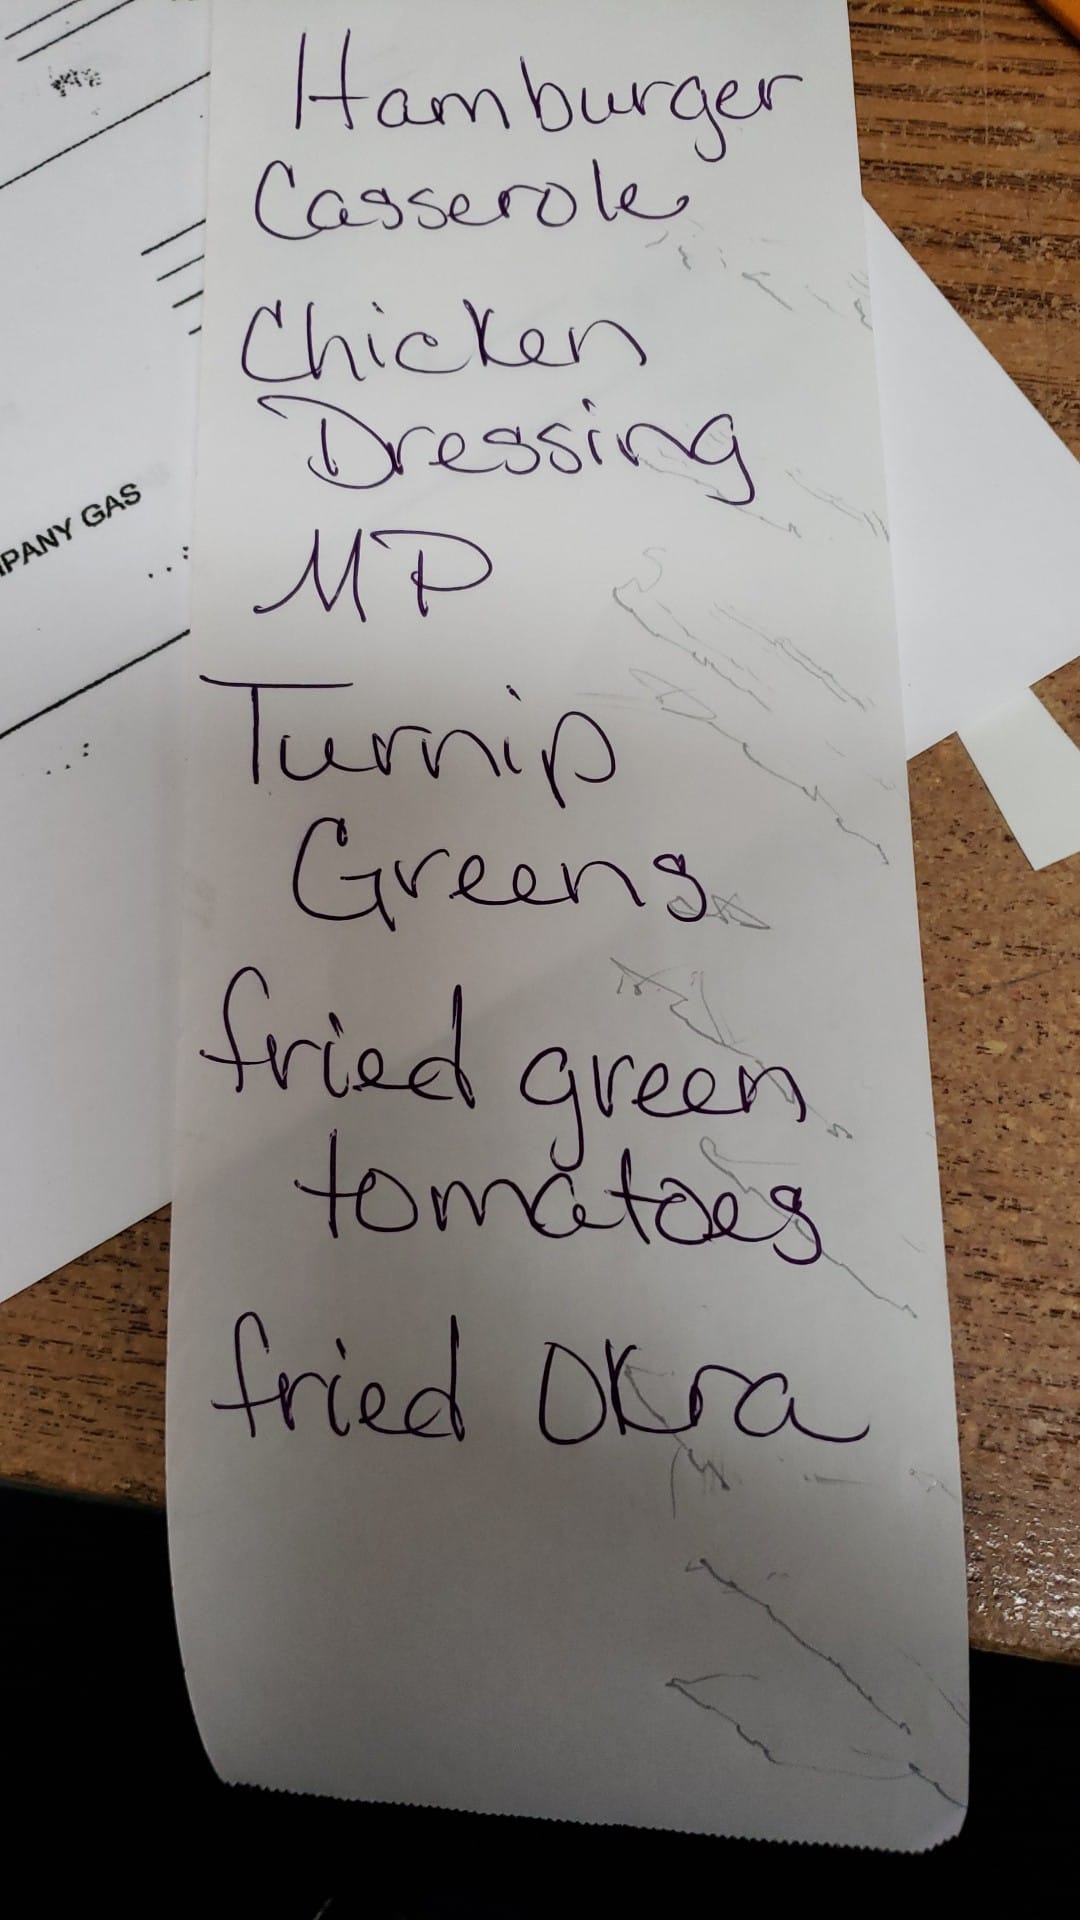 Hamburger
Casserole
Chicken
Dressing
MP
Turnip
Greens
fried green
tomatoes
fried Okra
MPANY GAS